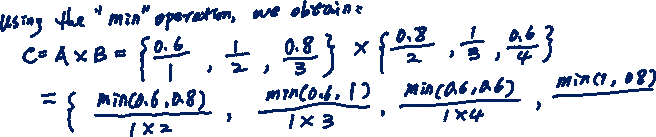 Using the "min" operation, we obtain:
C = A × B = { 0.6/1 , 1/2 , 0.8/3 } × { 0.8/2 , 1/3 , 0.6/4 }
= { min(0.6, 0.8)/1×2 , min(0.6, 1)/1×3 , min(0.6, 0.6)/1×4 , min(1, 0.8)